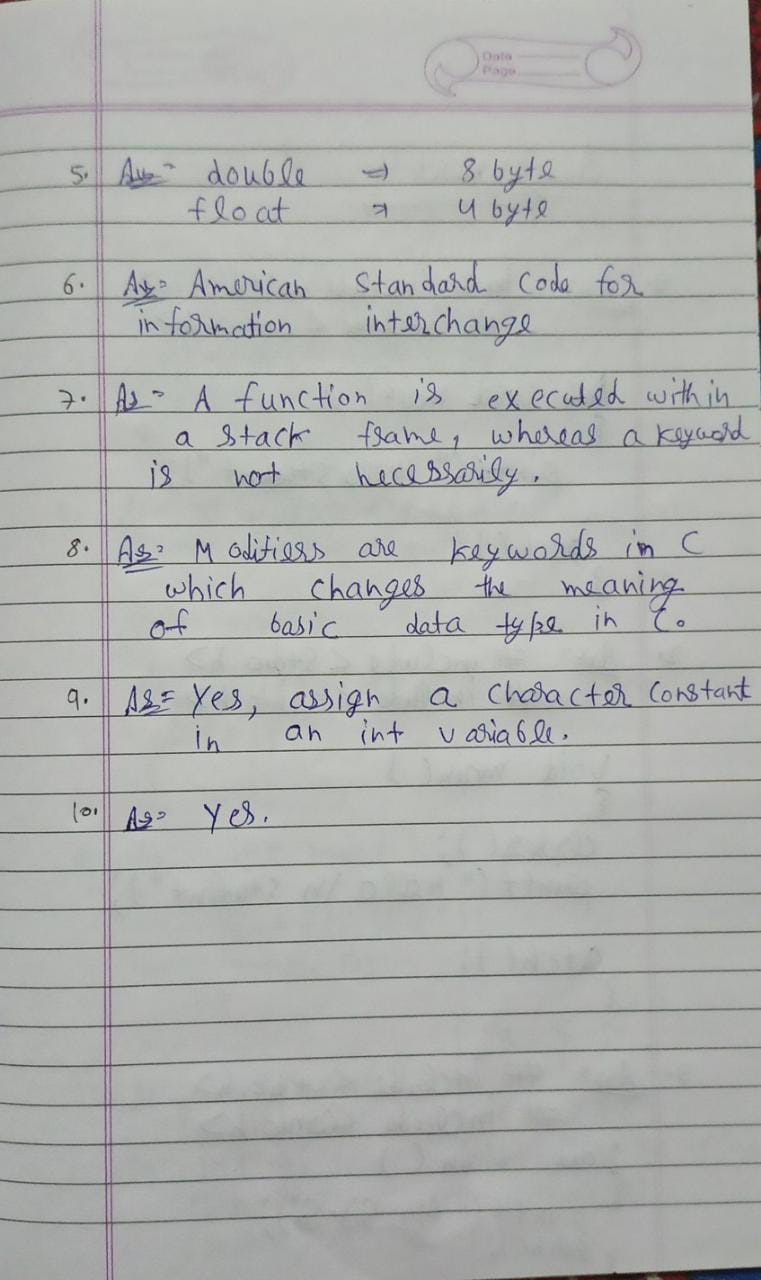 Date
Page
5. Ans= double ⇒ 8 byte
float ⇒ 4 byte
6. Ans= American Standard Code for
information interchange
7. As= A function is executed within
a stack frame, whereas a keyword
is not necessarily.
8. As= Modifiers are keywords in C
which changes the meaning
of basic data type in C.
9. As= Yes, assign a character constant
in an int variable.
10. As= Yes.